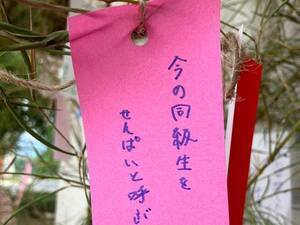 今の同級生を
せんぱいと呼ぶ